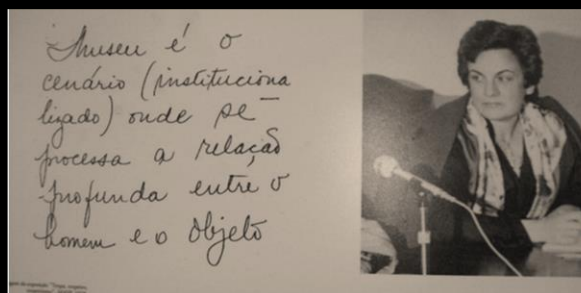 Museu é o
cenário (instituciona
lizado) onde se
processa a relação
profunda entre o
homem e o objeto